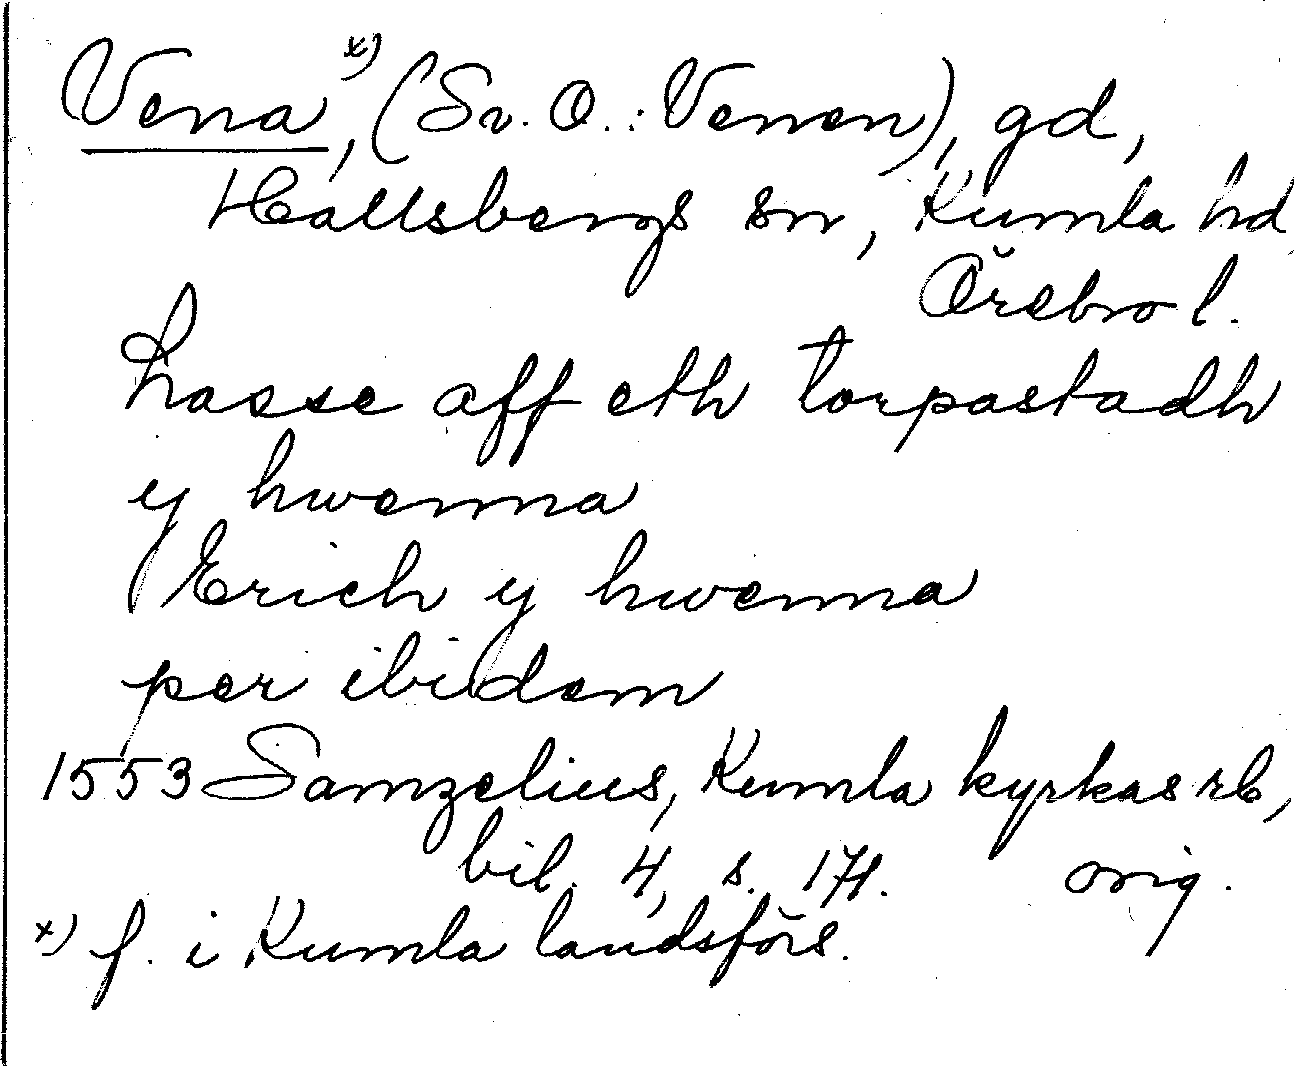 Vena x), (Sv. O.: Vennen), gd,
Hallsbergs sn, Kumla hd,
Örebro l.
Lasse aff eth torpastadh
y hwenna
Erich y hwenna
per ibidem
1553 Samzelius, Kumla kyrkas rb,
bil. 4, s. 171. orig.
x) f. i Kumla landsförs.